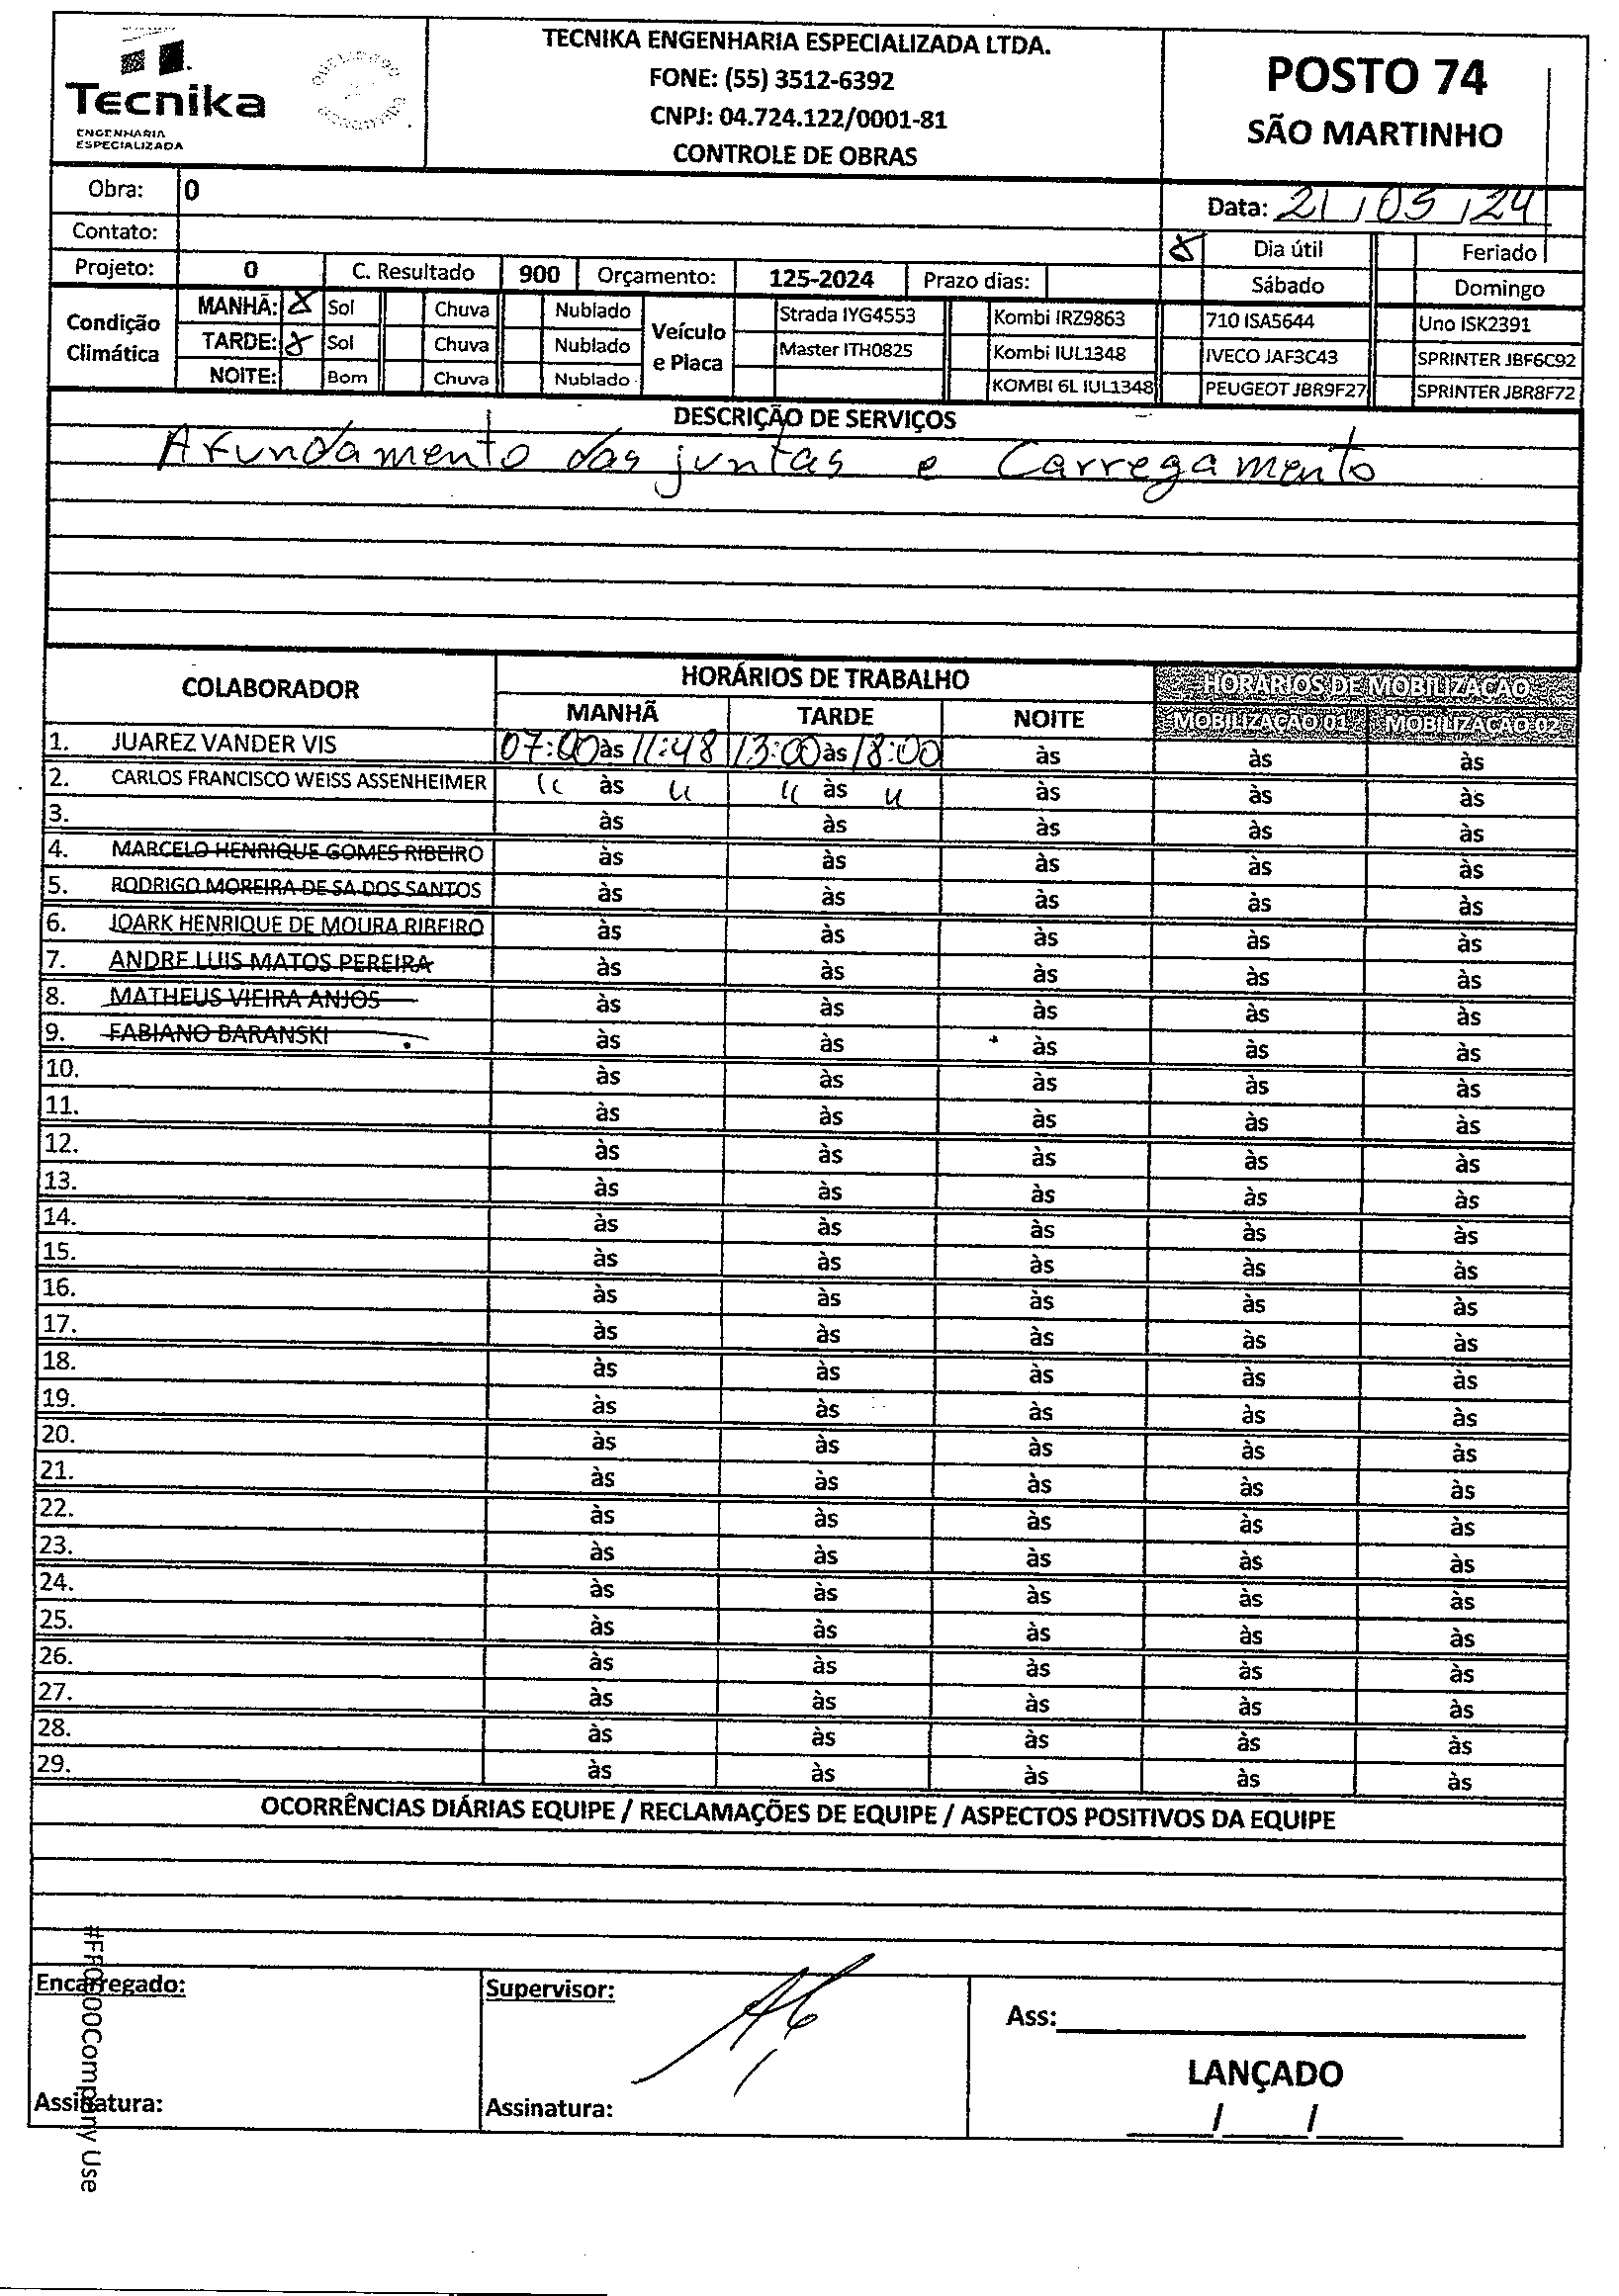 Tecnika
ENGENHARIA
ESPECIALIZADA
TECNIKA ENGENHARIA ESPECIALIZADA LTDA.
FONE: (55) 3512-6392
CNPJ: 04.724.122/0001-81
CONTROLE DE OBRAS
POSTO 74
SÃO MARTINHO
Obra: 0
Data: 21/05/24
Contato:
X Dia útil Feriado
Projeto: 0 C. Resultado 900 Orçamento: 125-2024 Prazo dias:
Sábado Domingo
Condição Climática
MANHÃ: X Sol Chuva Nublado
TARDE: X Sol Chuva Nublado
NOITE: Bom Chuva Nublado
Veículo e Placa
Strada IYG4553 Kombi IRZ9863 710 ISA5644 Uno ISK2391
Master ITH0825 Kombi IUL1348 IVECO JAF3C43 SPRINTER JBF6C92
KOMBI 6L IUL1348 PEUGEOT JBR9F27 SPRINTER JBR8F72
DESCRIÇÃO DE SERVIÇOS
Afundamento das juntas e Carregamento
COLABORADOR
HORÁRIOS DE TRABALHO
HORÁRIOS DE MOBILIZAÇÃO
MANHÃ TARDE NOITE MOBILIZAÇÃO 01 MOBILIZAÇÃO 02
1. JUAREZ VANDER VIS 07:00 às 11:48 13:00 às 18:00 às às às
2. CARLOS FRANCISCO WEISS ASSENHEIMER " às " " às " às às às
3. às às às às às
4. MARCELO HENRIQUE GOMES RIBEIRO às às às às às
5. RODRIGO MOREIRA DE SA DOS SANTOS às às às às às
6. JOARK HENRIQUE DE MOURA RIBEIRO às às às às às
7. ANDRE LUIS MATOS PEREIRA às às às às às
8. MATHEUS VIEIRA ANJOS às às às às às
9. FABIANO BARANSKI às às às às às
10. às às às às às
11. às às às às às
12. às às às às às
13. às às às às às
14. às às às às às
15. às às às às às
16. às às às às às
17. às às às às às
18. às às às às às
19. às às às às às
20. às às às às às
21. às às às às às
22. às às às às às
23. às às às às às
24. às às às às às
25. às às às às às
26. às às às às às
27. às às às às às
28. às às às às às
29. às às às às às
OCORRÊNCIAS DIÁRIAS EQUIPE / RECLAMAÇÕES DE EQUIPE / ASPECTOS POSITIVOS DA EQUIPE
Encarregado:
Assinatura:
Supervisor:
Assinatura:
Ass:
LANÇADO
/ /
Company Use